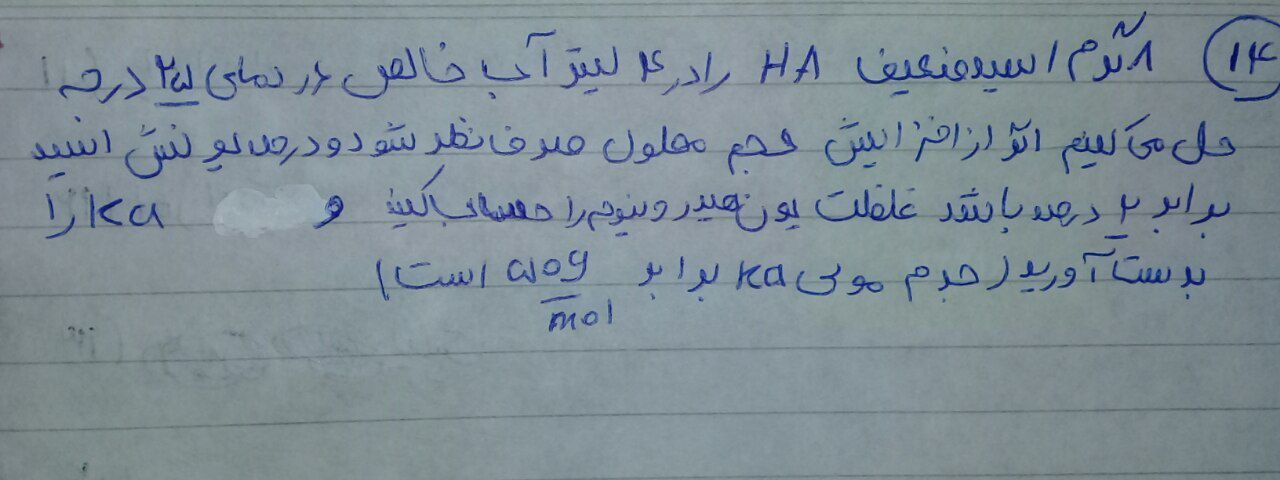 ۱۴) ۸ گرم اسید ضعیف HA را در ۴ لیتر آب خالص در دمای ۲۵ درجه
حل می کنیم اگر از افزایش حجم محلول صرف نظر شود و درصد یونش اسید
برابر ۲ درصد باشد غلظت یون هیدرونیوم را حساب کنید و ka را
بدست آورید (جرم مولی ka برابر ۵۰ g/mol است)